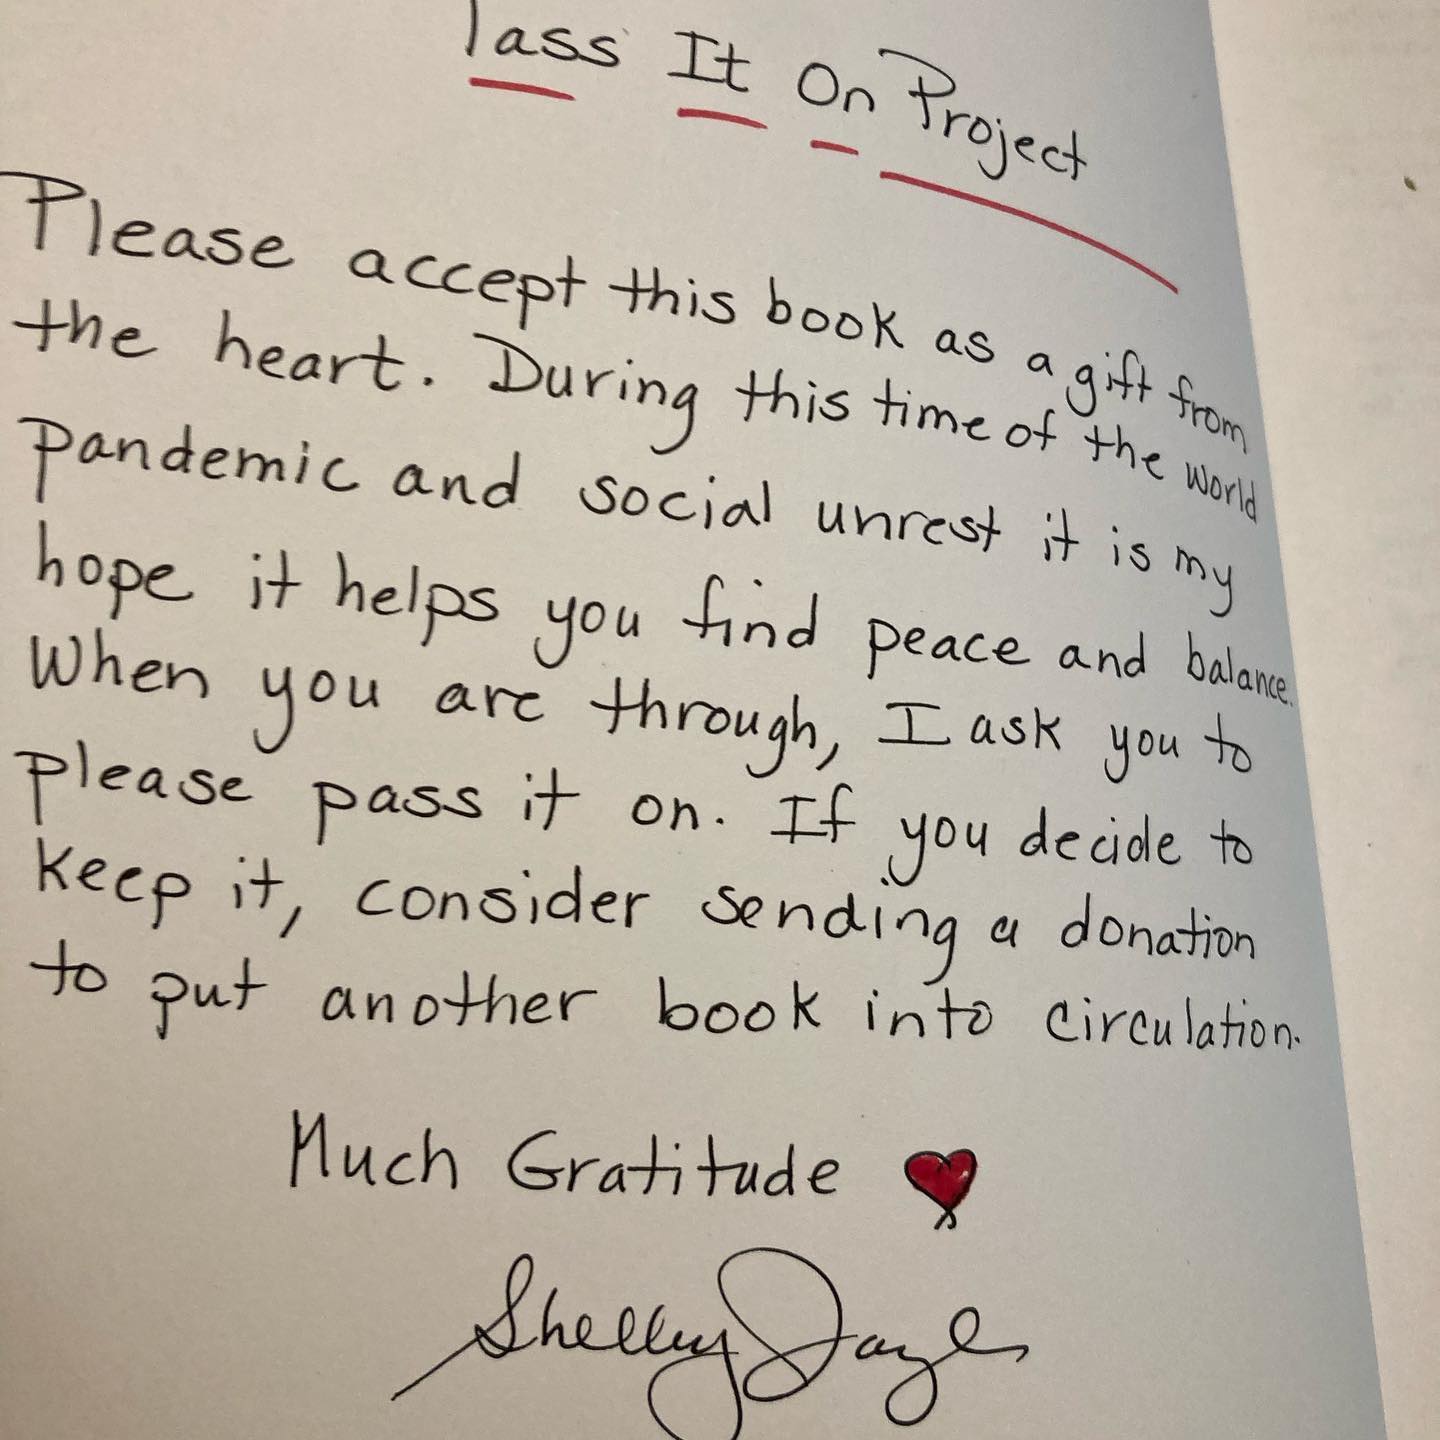 Pass It On Project
Please accept this book as a gift from
the heart. During this time of the world
pandemic and social unrest it is my
hope it helps you find peace and balance.
When you are through, I ask you to
please pass it on. If you decide to
keep it, consider sending a donation
to put another book into circulation.
Much Gratitude
Shelley Jaye